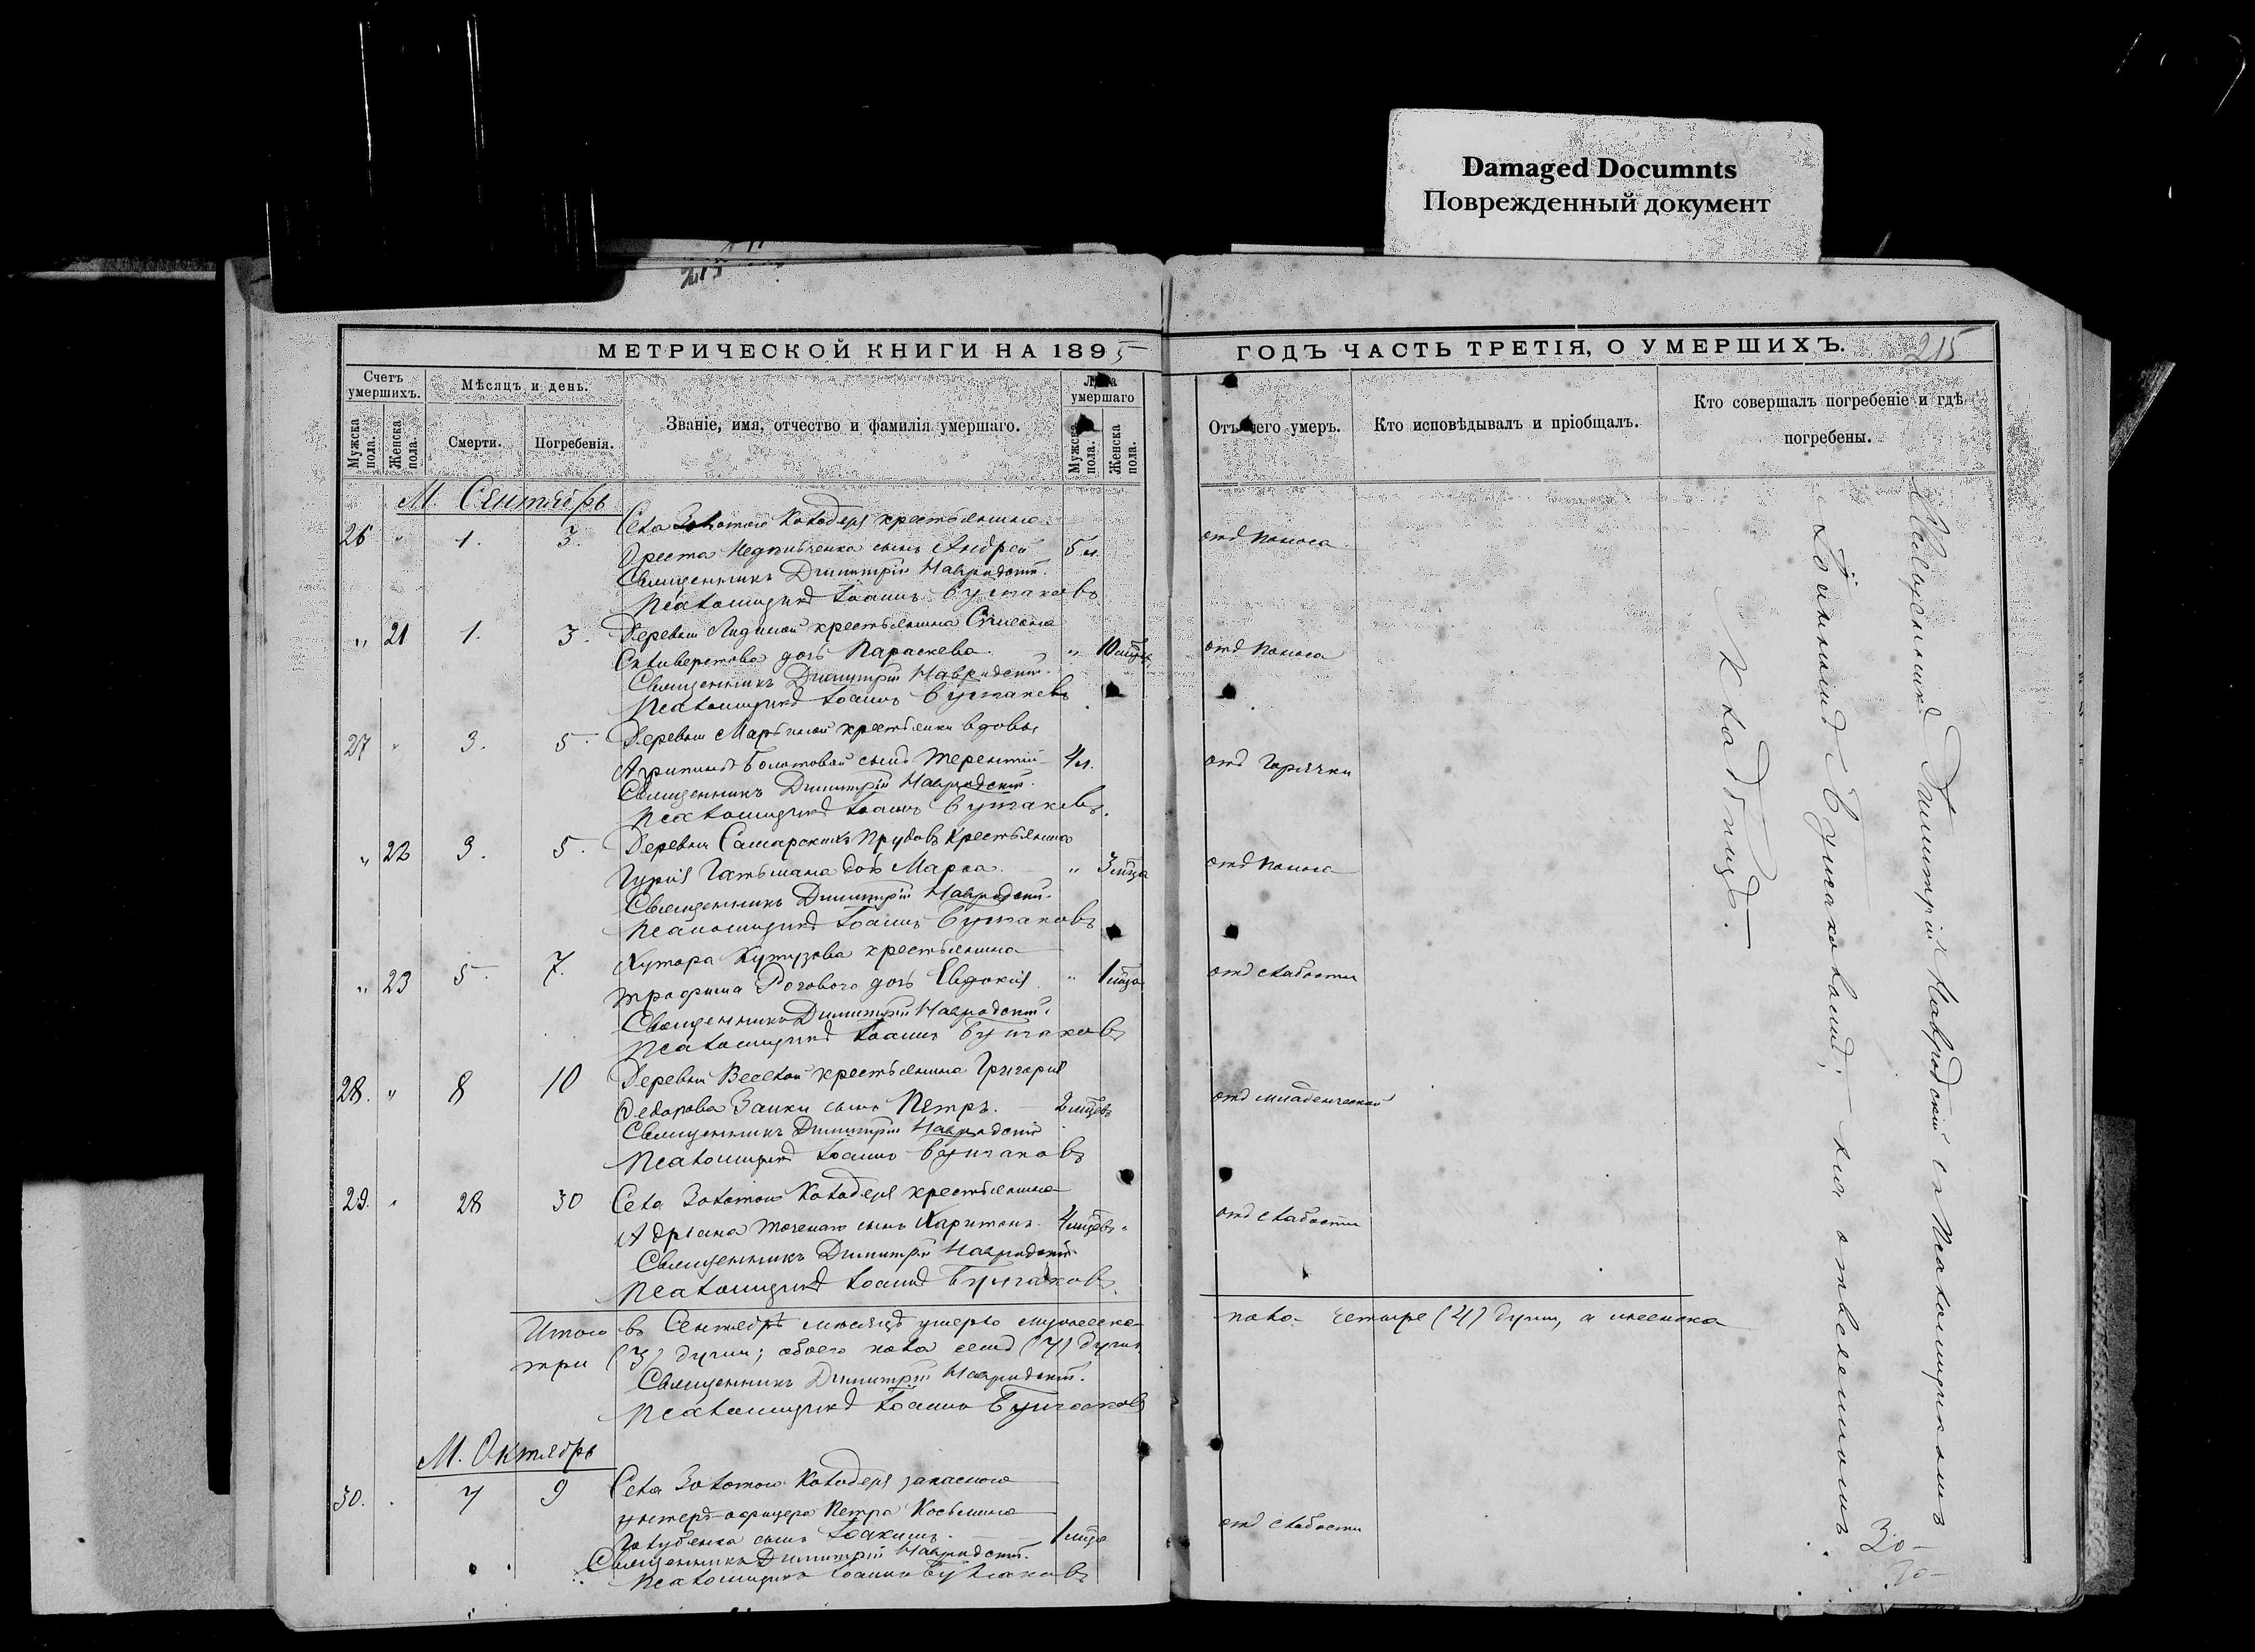 Damaged Documnts
Поврежденный документ
МЕТРИЧЕСКОЙ КНИГИ НА 1895
ГОДЪ ЧАСТЬ ТРЕТІЯ, О УМЕРШИХЪ.
215
Счетъ умершихъ.
Мѣсяцъ и день.
Званіе, имя, отчество и фамилія умершаго.
Лѣта умершаго
Мужска пола.
Женска пола.
Смерти.
Погребенія.
Мужска пола.
Женска пола.
Отъ чего умеръ.
Кто исповѣдывалъ и пріобщалъ.
Кто совершалъ погребеніе и гдѣ погребены.
М. Сентябрь
26 " 1. 3. Села Золотого Колодезя крестьянина
Ореста сынъ Андрей 5 л. отъ поноса
Священникъ Димитрій Навродскій.
Псаломщикъ Іоаннъ Бугаковъ
" 21 1. 3. Деревни крестьянина
дочь Параскева. " 10 мцевъ отъ поноса
Священникъ Димитрій Навродскій.
Псаломщикъ Іоаннъ Бугаковъ
27 " 3. 5. Деревни Марьиной крестьянки вдовы
Болотовой сынъ Терентій 4 л. отъ горячки
Священникъ Димитрій Навродскій.
Псаломщикъ Іоаннъ Бугаковъ.
" 22 3. 5. Деревни Самарскихъ Прудовъ крестьянина
Гурія Гатьмана дочь Марѳа. " 3 мца отъ поноса
Священникъ Димитрій Навродскій.
Псаломщикъ Іоаннъ Бугаковъ
" 23 5. 7. Хутора Кутузова крестьянина
Трофима Рогового дочь Евдокія. " 1 мца отъ слабости
Священникъ Димитрій Навродскій.
Псаломщикъ Іоаннъ Бугаковъ
28. " 8 10 Деревни Веселой крестьянина Григорія
Ѳедорова Заики сынъ Петръ. 2 мцевъ отъ младенческой
Священникъ Димитрій Навродскій
Псаломщикъ Іоаннъ Бугаковъ
29. " 28 30 Села Золотого Колодезя крестьянина
Адріана сынъ Харитонъ. 4 мцевъ " отъ слабости
Священникъ Димитрій Навродскій
Псаломщикъ Іоаннъ Бугаковъ.
Итого въ Сентябрѣ мѣсяцѣ умерло мужеска пола четыре (4) души, а женска
три (3) души; обоего пола семь (7) душъ
Священникъ Димитрій Навродскій.
Псаломщикъ Іоаннъ Бугаковъ
М. Октябрь
30. " 7 9 Села Золотого Колодезя запасного
унтеръ-офицера Петра Косьмина
Голубенка сынъ Іоакимъ. 1 мца отъ слабости
Священникъ Димитрій Навродскій.
Псаломщикъ Іоаннъ Бугаковъ
Священникъ Димитрій Навродскій съ Псаломщикомъ
Іоанномъ Бугаковымъ, на отведенномъ
кладбищѣ.
30